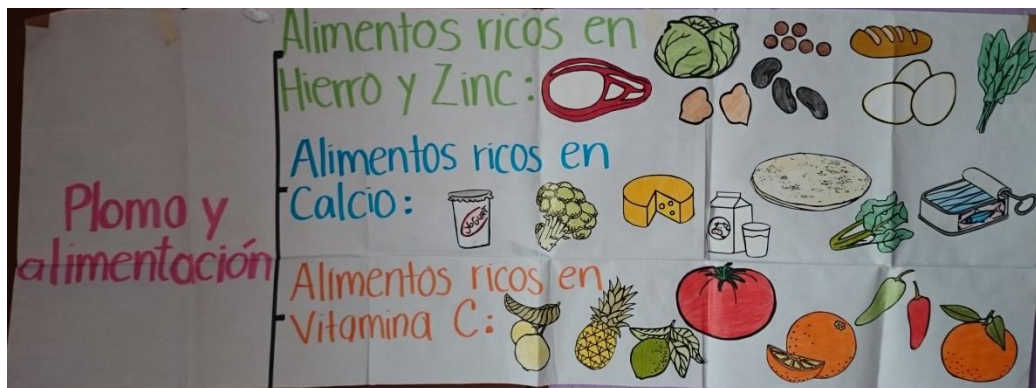 Plomo y
alimentación
Alimentos ricos en
Hierro y Zinc:
Alimentos ricos en
Calcio:
YOGURT
Alimentos ricos en
Vitamina C: